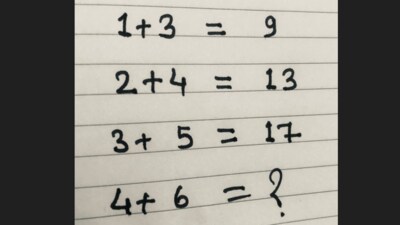 1+3 = 9
2+4 = 13
3+ 5 = 17
4+ 6 = ?